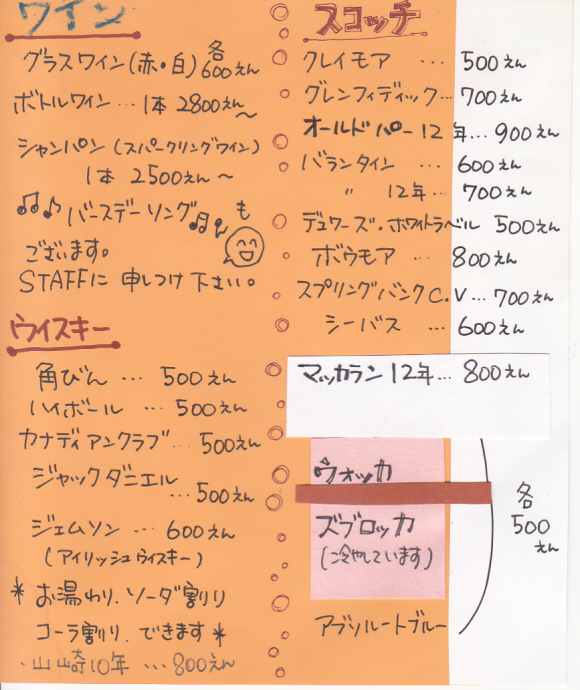 ワイン
グラスワイン(赤・白)各600えん
ボトルワイン…1本 2800えん〜
シャンパン(スパークリングワイン)
1本 2500えん〜
♫♪バースデーソング♫♪も
ございます。
STAFFに申しつけ下さい。
ウイスキー
角びん … 500えん
ハイボール … 500えん
カナディアンクラブ…500えん
ジャックダニエル
…500えん
ジェムソン … 600えん
(アイリッシュウイスキー)
*お湯わり.ソーダ割り
コーラ割り.できます*
・山崎10年 …800えん
スコッチ
クレイモア … 500えん
グレンフィディック…700えん
オールドパー12年…900えん
バランタイン … 600えん
〃 12年…700えん
デュワーズ・ホワイトラベル 500えん
ボウモア … 800えん
スプリングバンクC.V…700えん
シーバス … 600えん
マッカラン12年…800えん
ウォッカ
ズブロッカ
(冷やしています)
アブソルートブルー
各
500
えん